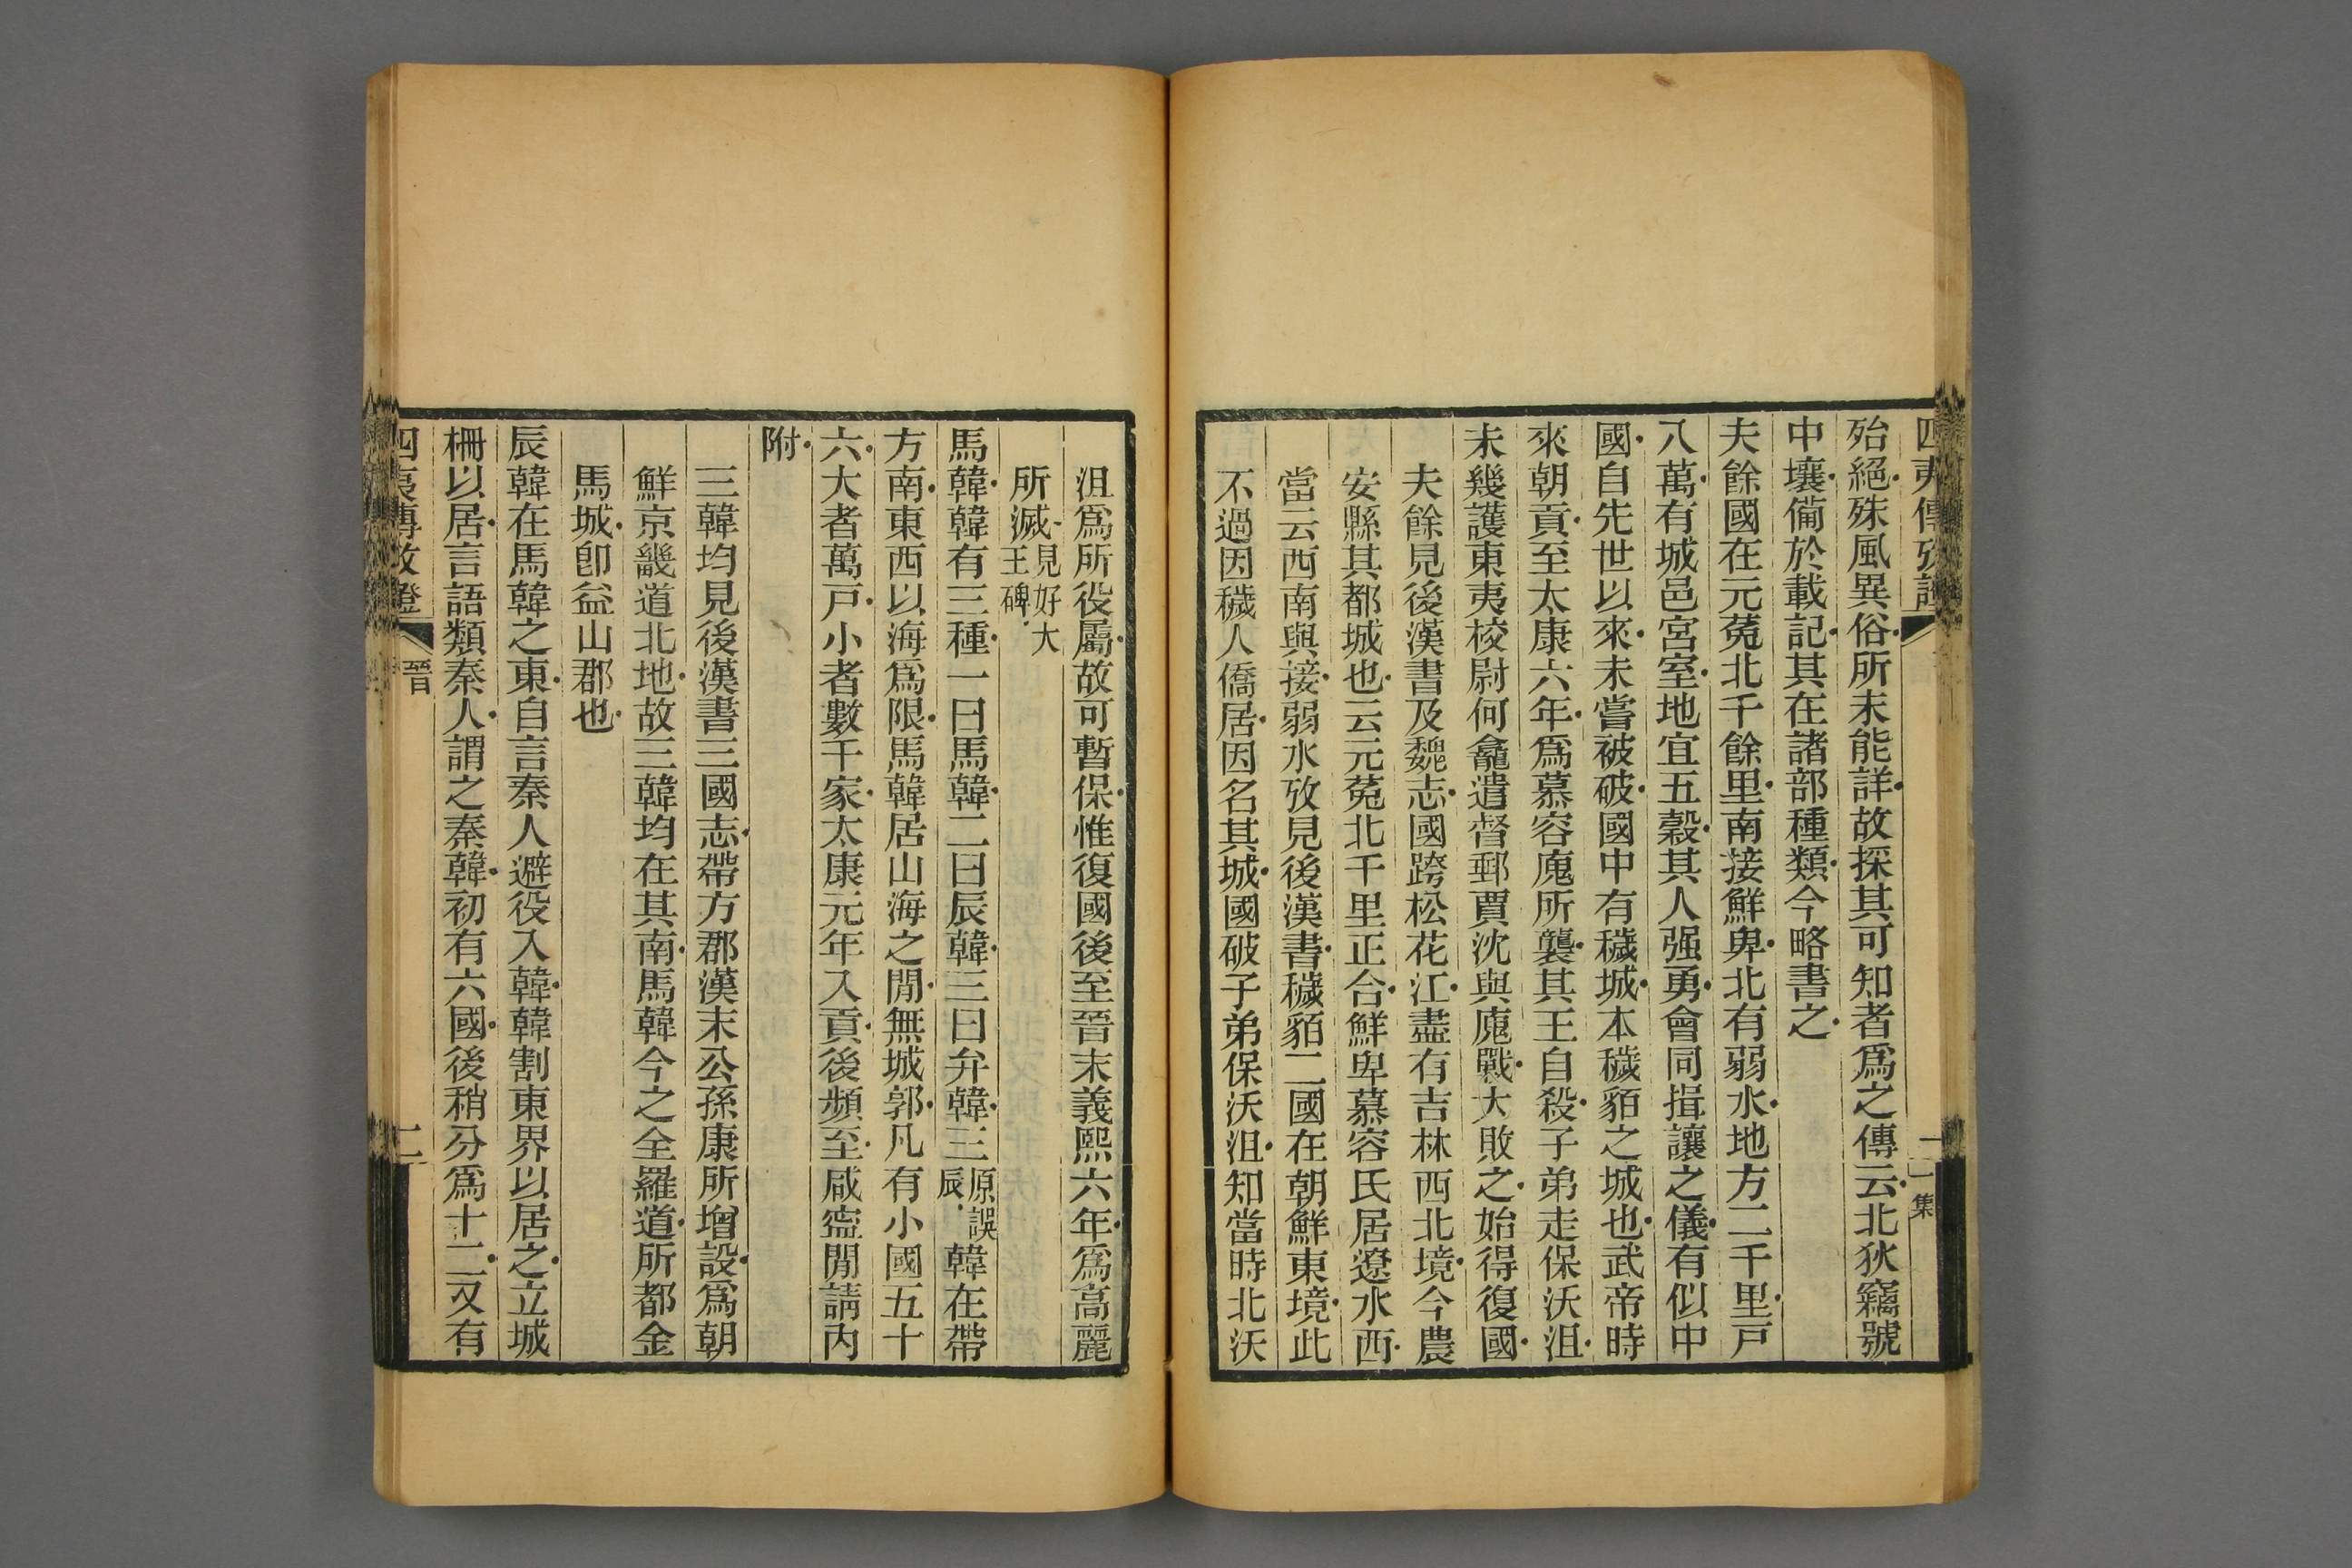 四夷傳攷證
一
集
殆絕殊風異俗所未能詳故採其可知者爲之傳云北狄竊號
中壤備於載記其在諸部種類今略書之
夫餘國在元菟北千餘里南接鮮卑北有弱水地方二千里戸
八萬有城邑宮室地宜五穀其人强勇會同揖讓之儀有似中
國自先世以來未嘗被破國中有穢城本穢貊之城也武帝時
來朝貢至太康六年爲慕容廆所襲其王自殺子弟走保沃沮
未幾護東夷校尉何龕遣督郵賈沈與廆戰大敗之始得復國
夫餘見後漢書及魏志國跨松花江盡有吉林西北境今農
安縣其都城也云元菟北千里正合鮮卑慕容氏居遼水西
當云西南與接弱水攷見後漢書穢貊二國在朝鮮東境此
不過因穢人僑居因名其城國破子弟保沃沮知當時北沃
沮爲所役屬故可暫保惟復國後至晉末義熙六年爲高麗
所滅見好大王碑
馬韓韓有三種一曰馬韓二曰辰韓三曰弁韓三原誤辰韓在帶
方南東西以海爲限馬韓居山海之閒無城郭凡有小國五十
六大者萬戸小者數千家太康元年入貢後頻至咸寍閒請內
附
三韓均見後漢書三國志帶方郡漢末公孫康所增設爲朝
鮮京畿道北地故三韓均在其南馬韓今之全羅道所都金
馬城卽益山郡也
辰韓在馬韓之東自言秦人避役入韓韓割東界以居之立城
柵以居言語類秦人謂之秦韓初有六國後稍分爲十二又有
四夷傳攷證
晉
二